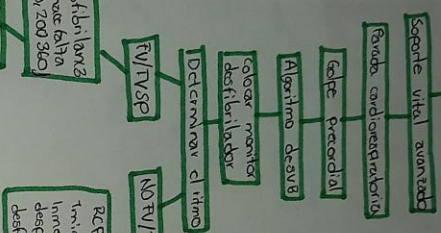 Soporte vital avanzado
Parada cardiorespiratoria
Golpe precordial
Algoritmo desVB
colocar monitor
desfibrilador
Determinar el ritmo
FV/TVSP
NO FV/T
fibrilarx3
hace falta
, 200 360J
RCP
1mi
Inme
desf
desf